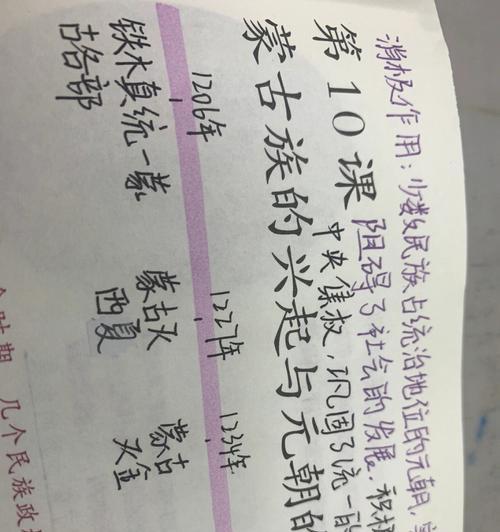 消极作用：少数民族占统治地位的元朝，
阻碍了社会的发展，积极
第10课
中央集权，巩固了统一的
蒙古族的兴起与元朝的
1206年
1227年
1234年
铁木真统一蒙
古各部
蒙古灭
西夏
蒙古
灭金
时期，几个民族政